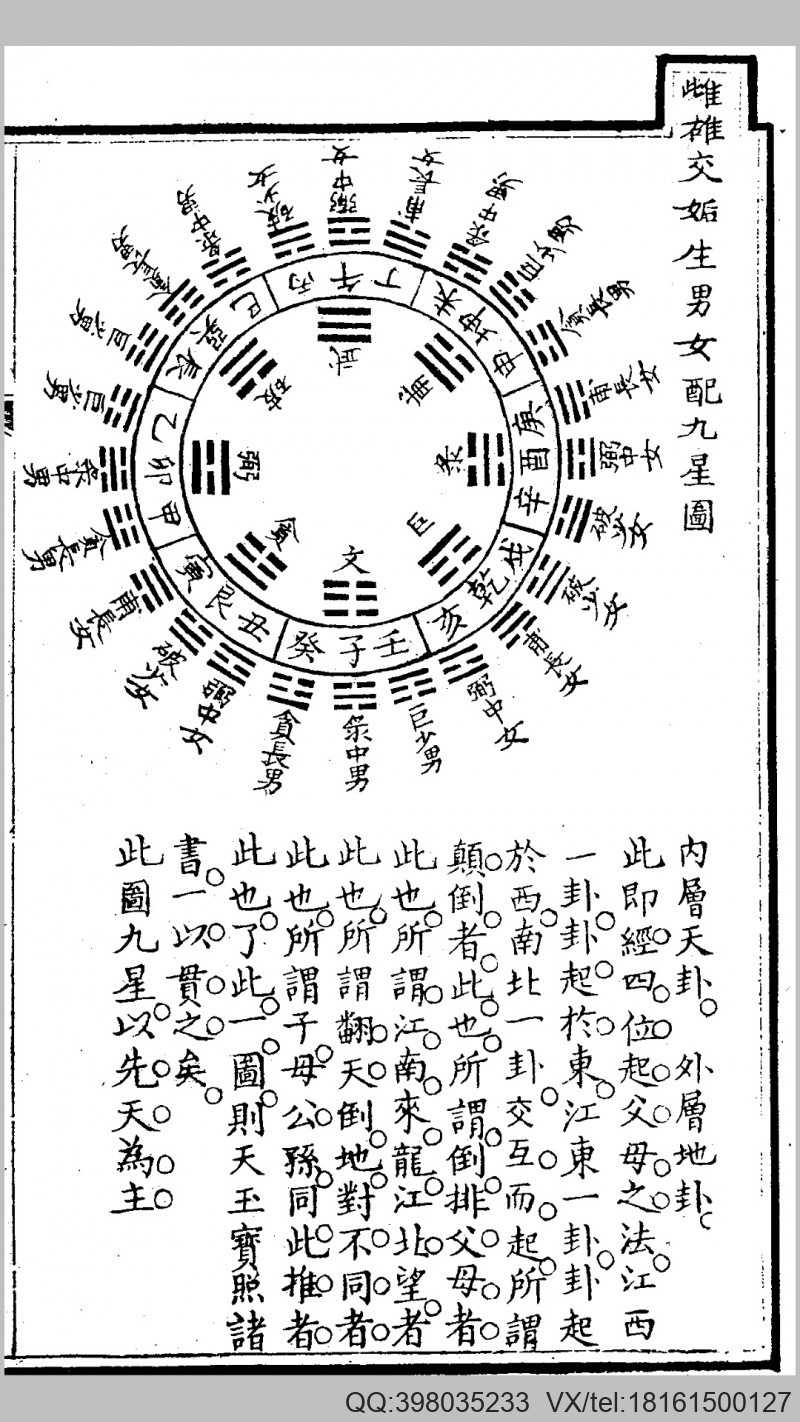 雌雄交姤生男女配九星圖
破少女
弼中女
甫長女
彔中男
巨少男
貪長男
甫長女
弼中女
破少女
破少女
甫長女
弼中女
巨少男
彔中男
貪長男
弼中女
破少女
甫長女
貪長男
彔中男
巨少男
巨少男
貪長男
彔中男
丙午丁
未坤申
庚酉辛
戌乾亥
壬子癸
丑艮寅
甲卯乙
辰巽巳
武
甫
彔
巨
文
貪
弼
破
內層天卦 外層地卦
此即經四位起父母之法江西
一卦卦起於東江東一卦卦起
於西南北一卦交互而起所謂
顛倒者此也所謂倒排父母者
此也所謂江南來龍江北望者
此也所謂翻天倒地對不同者
此也所謂子母公孫同此推者
此也了此一圖則天玉寶照諸
書一以貫之矣
此圖九星以先天為主
QQ:398035233 VX/tel:18161500127